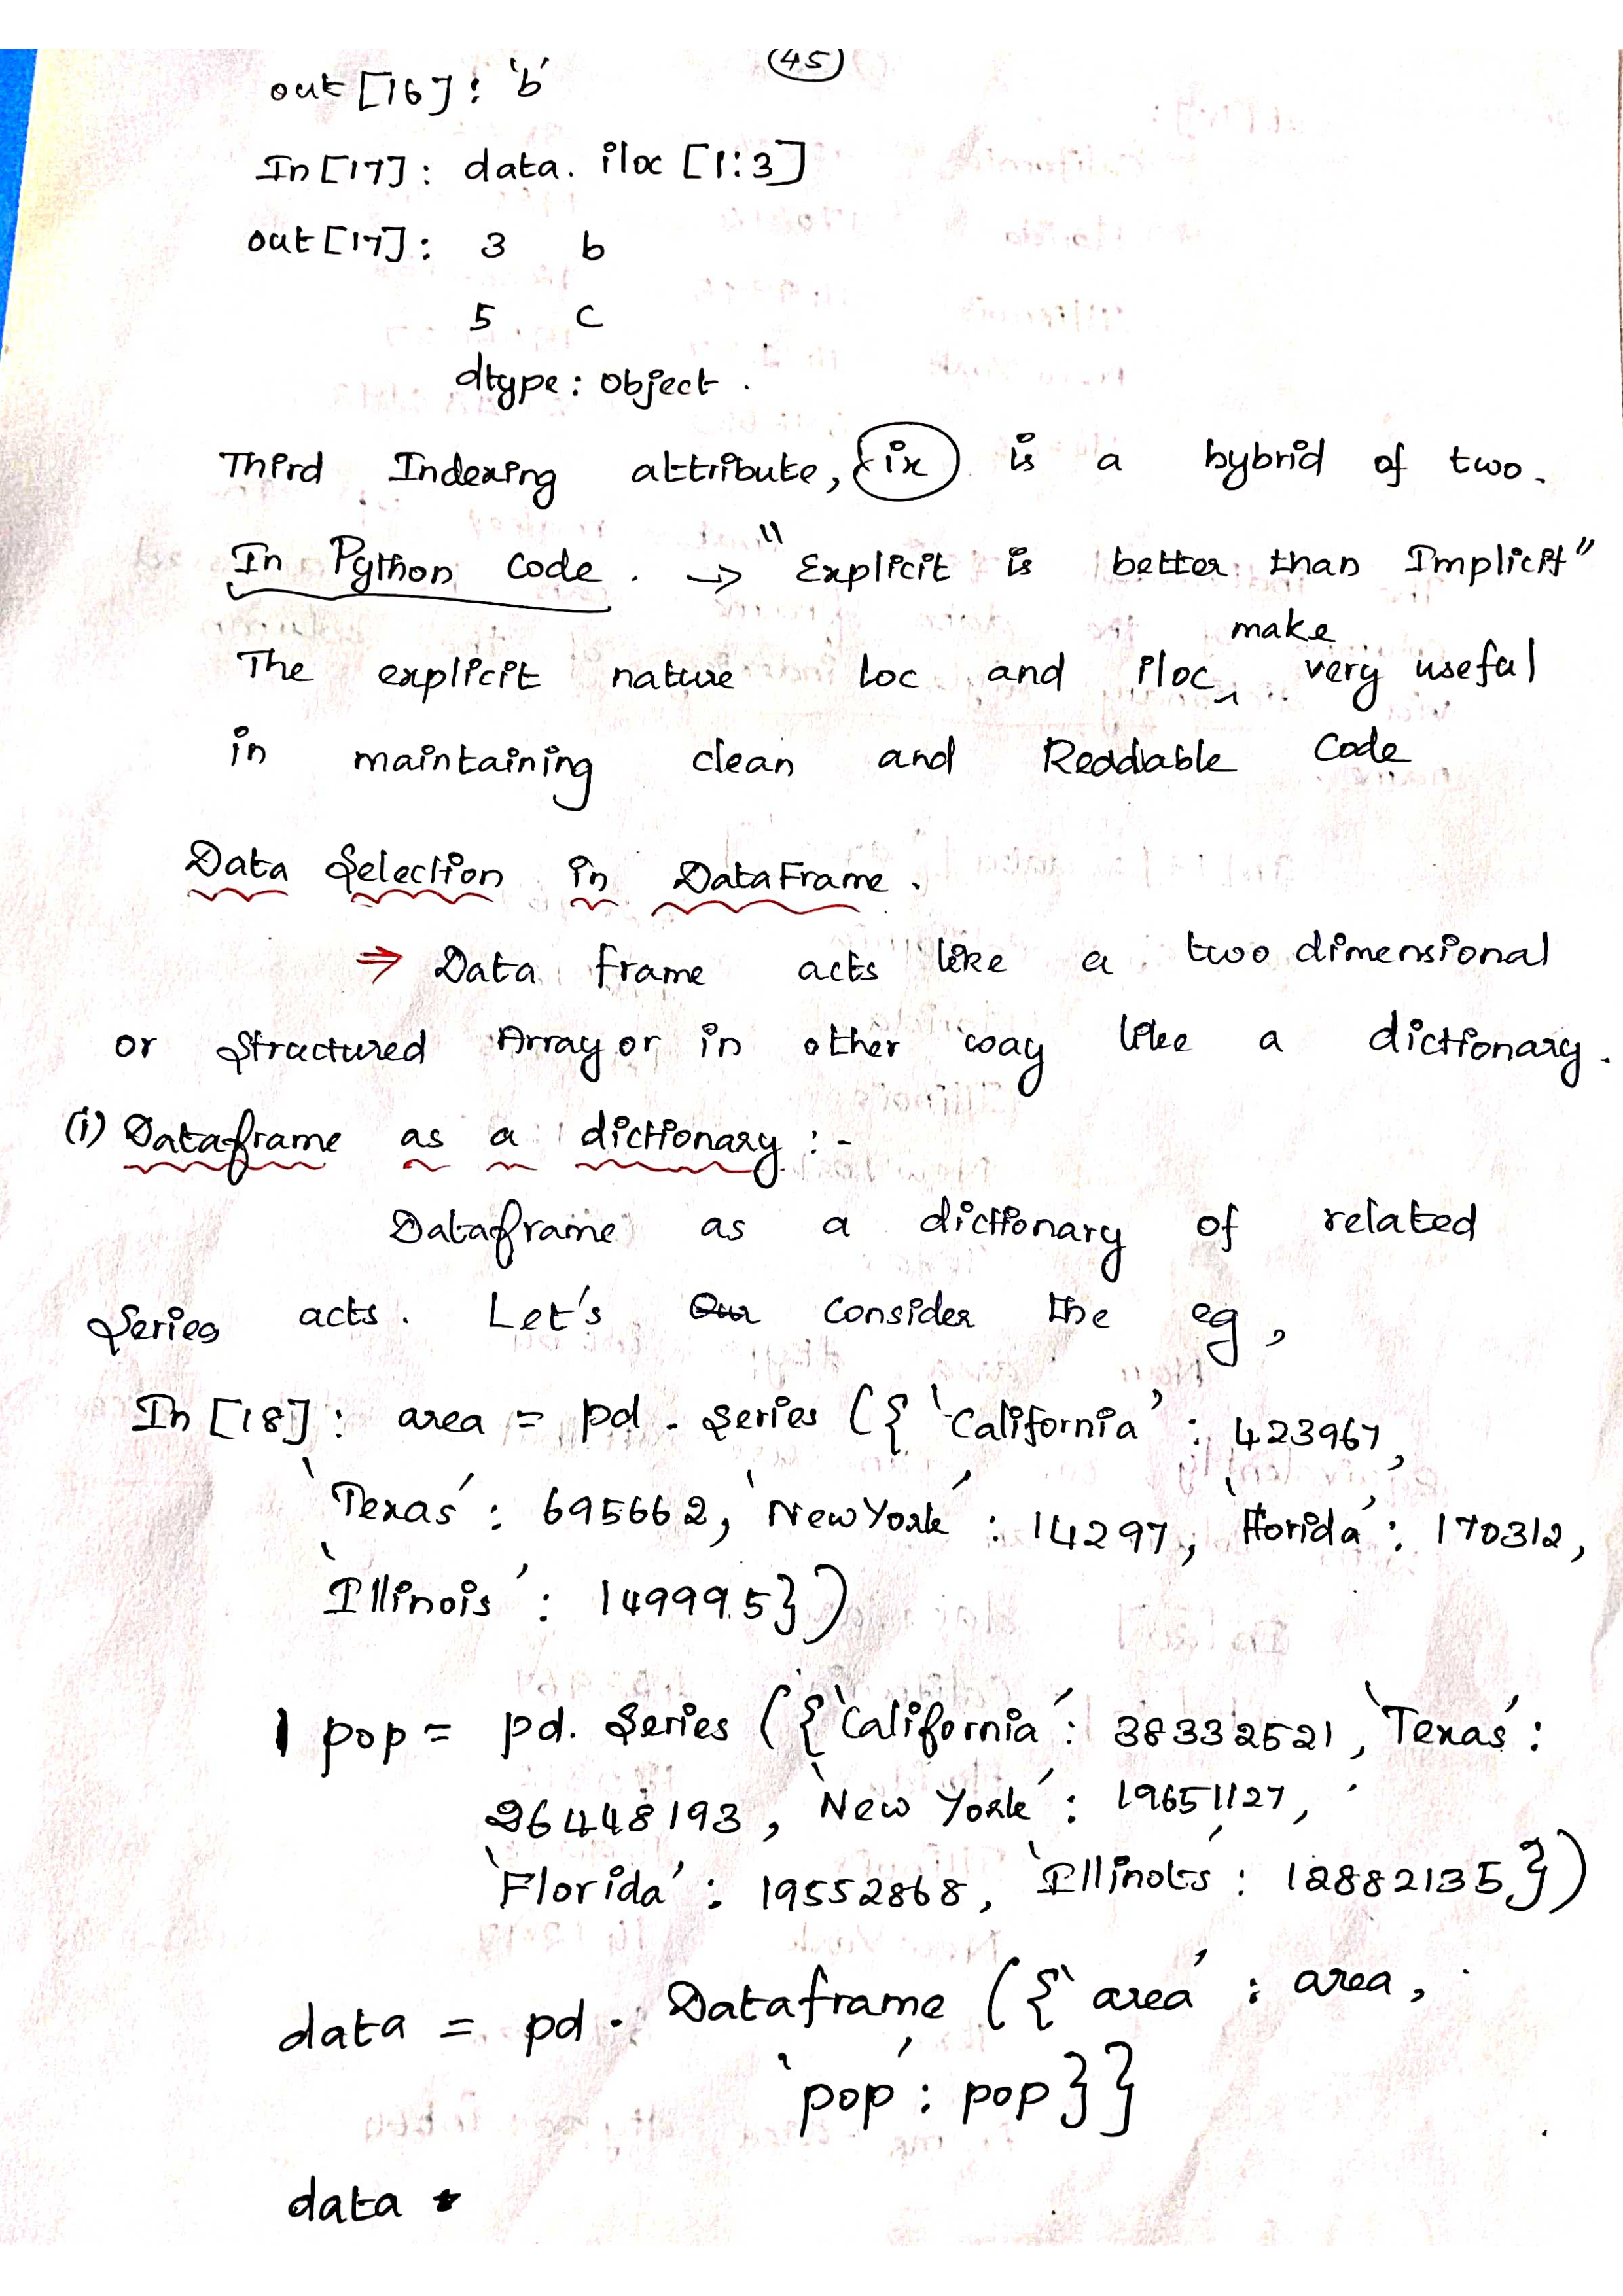 45
out [16] : 'b'
In [17] : data. iloc [1:3]
out [17] : 3 b
5 c
dtype : object .
Third Indexing attribute, ix is a hybrid of two.
In Python code . → "Explicit is better than Implicit"
The explicit nature loc and iloc make very useful
in maintaining clean and Readable Code
Data Selection in DataFrame .
⇒ Data frame acts like a two dimensional
or Structured Array or in other way like a dictionary.
(i) Dataframe as a dictionary :-
Dataframe as a dictionary of related
Series acts. Let's consider the eg,
In [18] : area = pd . series ({ 'California' : 423967,
'Texas' : 695662, 'NewYork' : 14297, 'Florida' : 170312,
'Illinois' : 149995})
pop = pd. Series ({'California' : 38332521, 'Texas' :
26448193, 'New York' : 19651127,
'Florida' : 19552868, 'Illinois' : 12882135})
data = pd . Dataframe ({'area' : area,
'pop' : pop}}
data